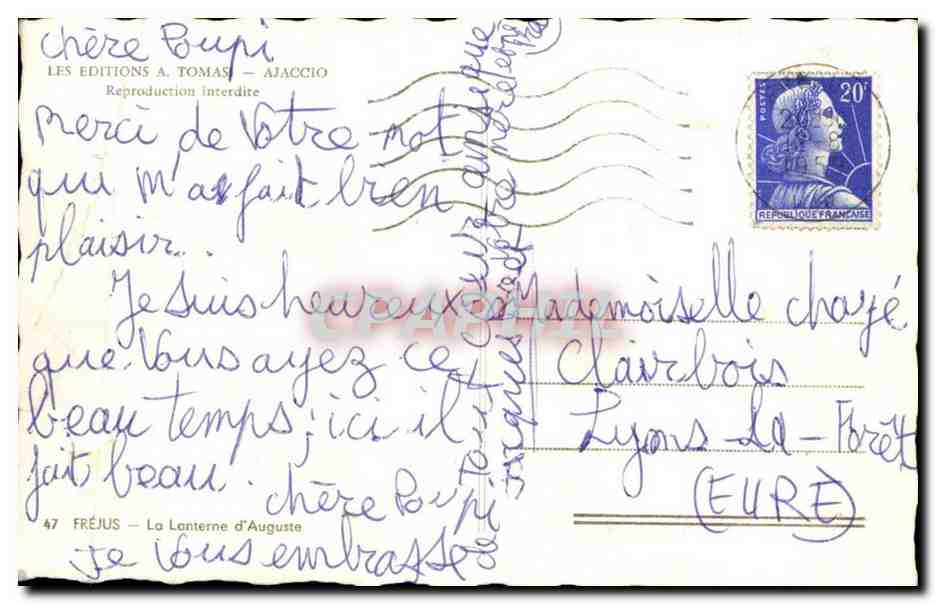 chère Poupi
LES EDITIONS A. TOMASI — AJACCIO
Reproduction interdite
Merci de Votre mot
qui m'a fait bien
plaisir..
Je suis heureux
que Vous ayez ce
beau temps; ici il
fait beau.
chère Poupi
47 FRÉJUS — La Lanterne d'Auguste
Je Vous embrasse
de Tout
ainsi que
Jacques
Mademoiselle chayé
Clairbois
Lyons-La-Forêt
(EURE)
POSTES
20F
REPUBLIQUE FRANÇAISE
CPAPHIL